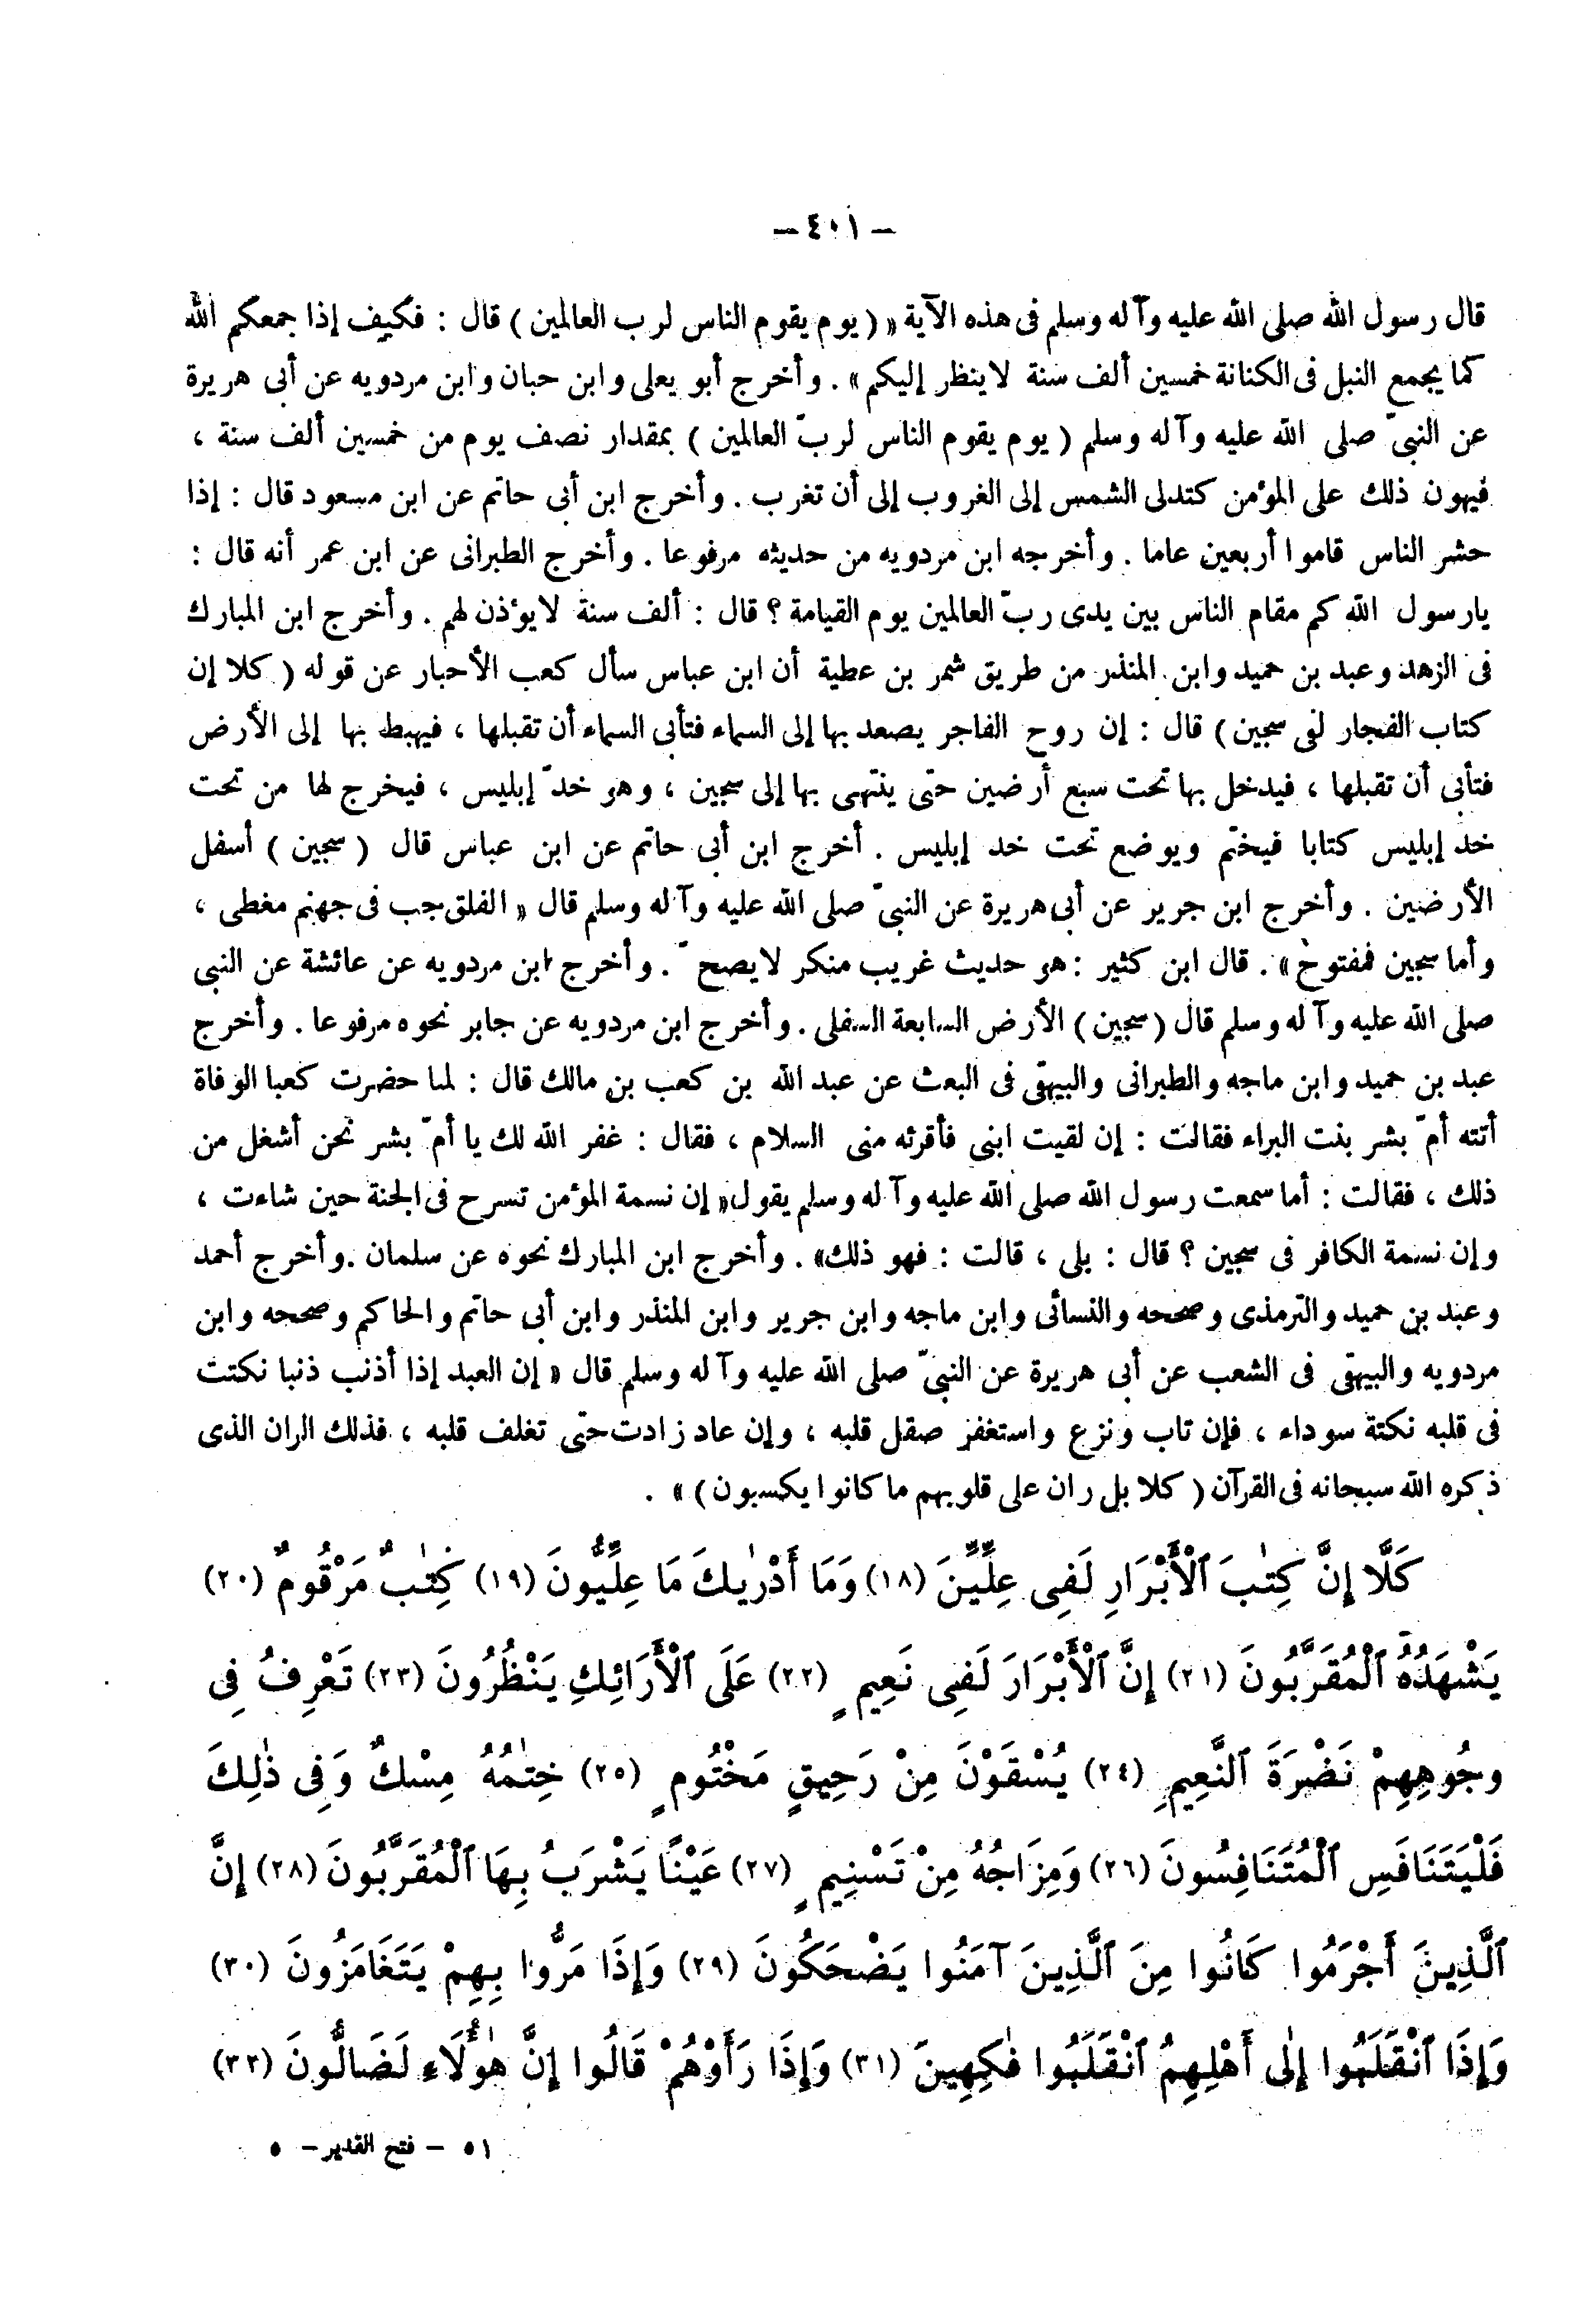 — ٤٠١ —
قال رسول الله صلى الله عليه وآله وسلم فى هذه الآية « ( يوم يقوم الناس لرب العالمين ) قال : فكيف إذا جمعكم الله
كما يجمع النبل فى الكنانة خمسين ألف سنة لاينظر إليكم » . وأخرج أبو يعلى وابن حبان وابن مردويه عن أبى هريرة
عن النبىّ صلى الله عليه وآله وسلم ( يوم يقوم الناس لربّ العالمين ) بمقدار نصف يوم من خمسين ألف سنة ،
فيهون ذلك على المؤمن كتدلى الشمس إلى الغروب إلى أن تغرب . وأخرج ابن أبى حاتم عن ابن مسعود قال : إذا
حشر الناس قاموا أربعين عاما . وأخرجه ابن مردويه من حديثه مرفوعا . وأخرج الطبرانى عن ابن عمر أنه قال :
يارسول الله كم مقام الناس بين يدى ربّ العالمين يوم القيامة ؟ قال : ألف سنة لايؤذن لهم . وأخرج ابن المبارك
فى الزهد وعبد بن حميد وابن المنذر من طريق شمر بن عطية أن ابن عباس سأل كعب الأحبار عن قوله ( كلا إن
كتاب الفجار لفى سجين ) قال : إن روح الفاجر يصعد بها إلى السماء فتأبى السماء أن تقبلها ، فيهبط بها إلى الأرض
فتأبى أن تقبلها ، فيدخل بها تحت سبع أرضين حتى ينتهى بها إلى سجين ، وهو خدّ إبليس ، فيخرج لها من تحت
خد إبليس كتابا فيختم ويوضع تحت خد إبليس . أخرج ابن أبى حاتم عن ابن عباس قال ( سجين ) أسفل
الأرضين . وأخرج ابن جرير عن أبى هريرة عن النبىّ صلى الله عليه وآله وسلم قال « الفلق جب فى جهنم مغطى ،
وأما سجين فمفتوح » . قال ابن كثير : هو حديث غريب منكر لايصحّ . وأخرج ابن مردويه عن عائشة عن النبى
صلى الله عليه وآله وسلم قال ( سجين ) الأرض السابعة السفلى . وأخرج ابن مردويه عن جابر نحوه مرفوعا . وأخرج
عبد بن حميد وابن ماجه والطبرانى والبيهقى فى البعث عن عبد الله بن كعب بن مالك قال : لما حضرت كعبا الوفاة
أتته أمّ بشر بنت البراء فقالت : إن لقيت ابنى فأقرئه منى السلام ، فقال : غفر الله لك يا أمّ بشر نحن أشغل من
ذلك ، فقالت : أما سمعت رسول الله صلى الله عليه وآله وسلم يقول « إن نسمة المؤمن تسرح فى الجنة حين شاءت ،
وإن نسمة الكافر فى سجين ؟ قال : بلى ، قالت : فهو ذلك » . وأخرج ابن المبارك نحوه عن سلمان . وأخرج أحمد
وعبد بن حميد والترمذى وصححه والنسائى وابن ماجه وابن جرير وابن المنذر وابن أبى حاتم والحاكم وصححه وابن
مردويه والبيهقى فى الشعب عن أبى هريرة عن النبىّ صلى الله عليه وآله وسلم قال « إن العبد إذا أذنب ذنبا نكتت
فى قلبه نكتة سوداء ، فإن تاب ونزع واستغفر صقل قلبه ، وإن عاد زادت حتى تغلف قلبه ، فذلك الران الذى
ذكره الله سبحانه فى القرآن ( كلا بل ران على قلوبهم ما كانوا يكسبون ) » .
كَلَّا إِنَّ كِتٰبَ ٱلْأَبْرَارِ لَفِى عِلِّيِّنَ (١٨) وَمَا أَدْرٰيكَ مَا عِلِّيُّونَ (١٩) كِتٰبٌ مَرْقُومٌ (٢٠)
يَشْهَدُهُ ٱلْمُقَرَّبُونَ (٢١) إِنَّ ٱلْأَبْرَارَ لَفِى نَعِيمٍ (٢٢) عَلَى ٱلْأَرَائِكِ يَنْظُرُونَ (٢٣) تَعْرِفُ فِى
وجُوهِهِمْ نَضْرَةَ ٱلنَّعِيمِ (٢٤) يُسْقَوْنَ مِنْ رَحِيقٍ مَخْتُومٍ (٢٥) خِتٰمُهُ مِسْكٌ وَفِى ذٰلِكَ
فَلْيَتَنَافَسِ ٱلْمُتَنَافِسُونَ (٢٦) وَمِزَاجُهُ مِنْ تَسْنِيمٍ (٢٧) عَيْنًا يَشْرَبُ بِهَا ٱلْمُقَرَّبُونَ (٢٨) إِنَّ
ٱلَّذِينَ أَجْرَمُوا كَانُوا مِنَ ٱلَّذِينَ آمَنُوا يَضْحَكُونَ (٢٩) وَإِذَا مَرُّوا بِهِمْ يَتَغَامَزُونَ (٣٠)
وَإِذَا ٱنْقَلَبُوا إِلٰى أَهْلِهِمُ ٱنْقَلَبُوا فٰكِهِينَ (٣١) وَإِذَا رَأَوْهُمْ قَالُوا إِنَّ هٰؤُلَاءِ لَضَالُّونَ (٣٢)
٥١ — فتح القدير — ٥